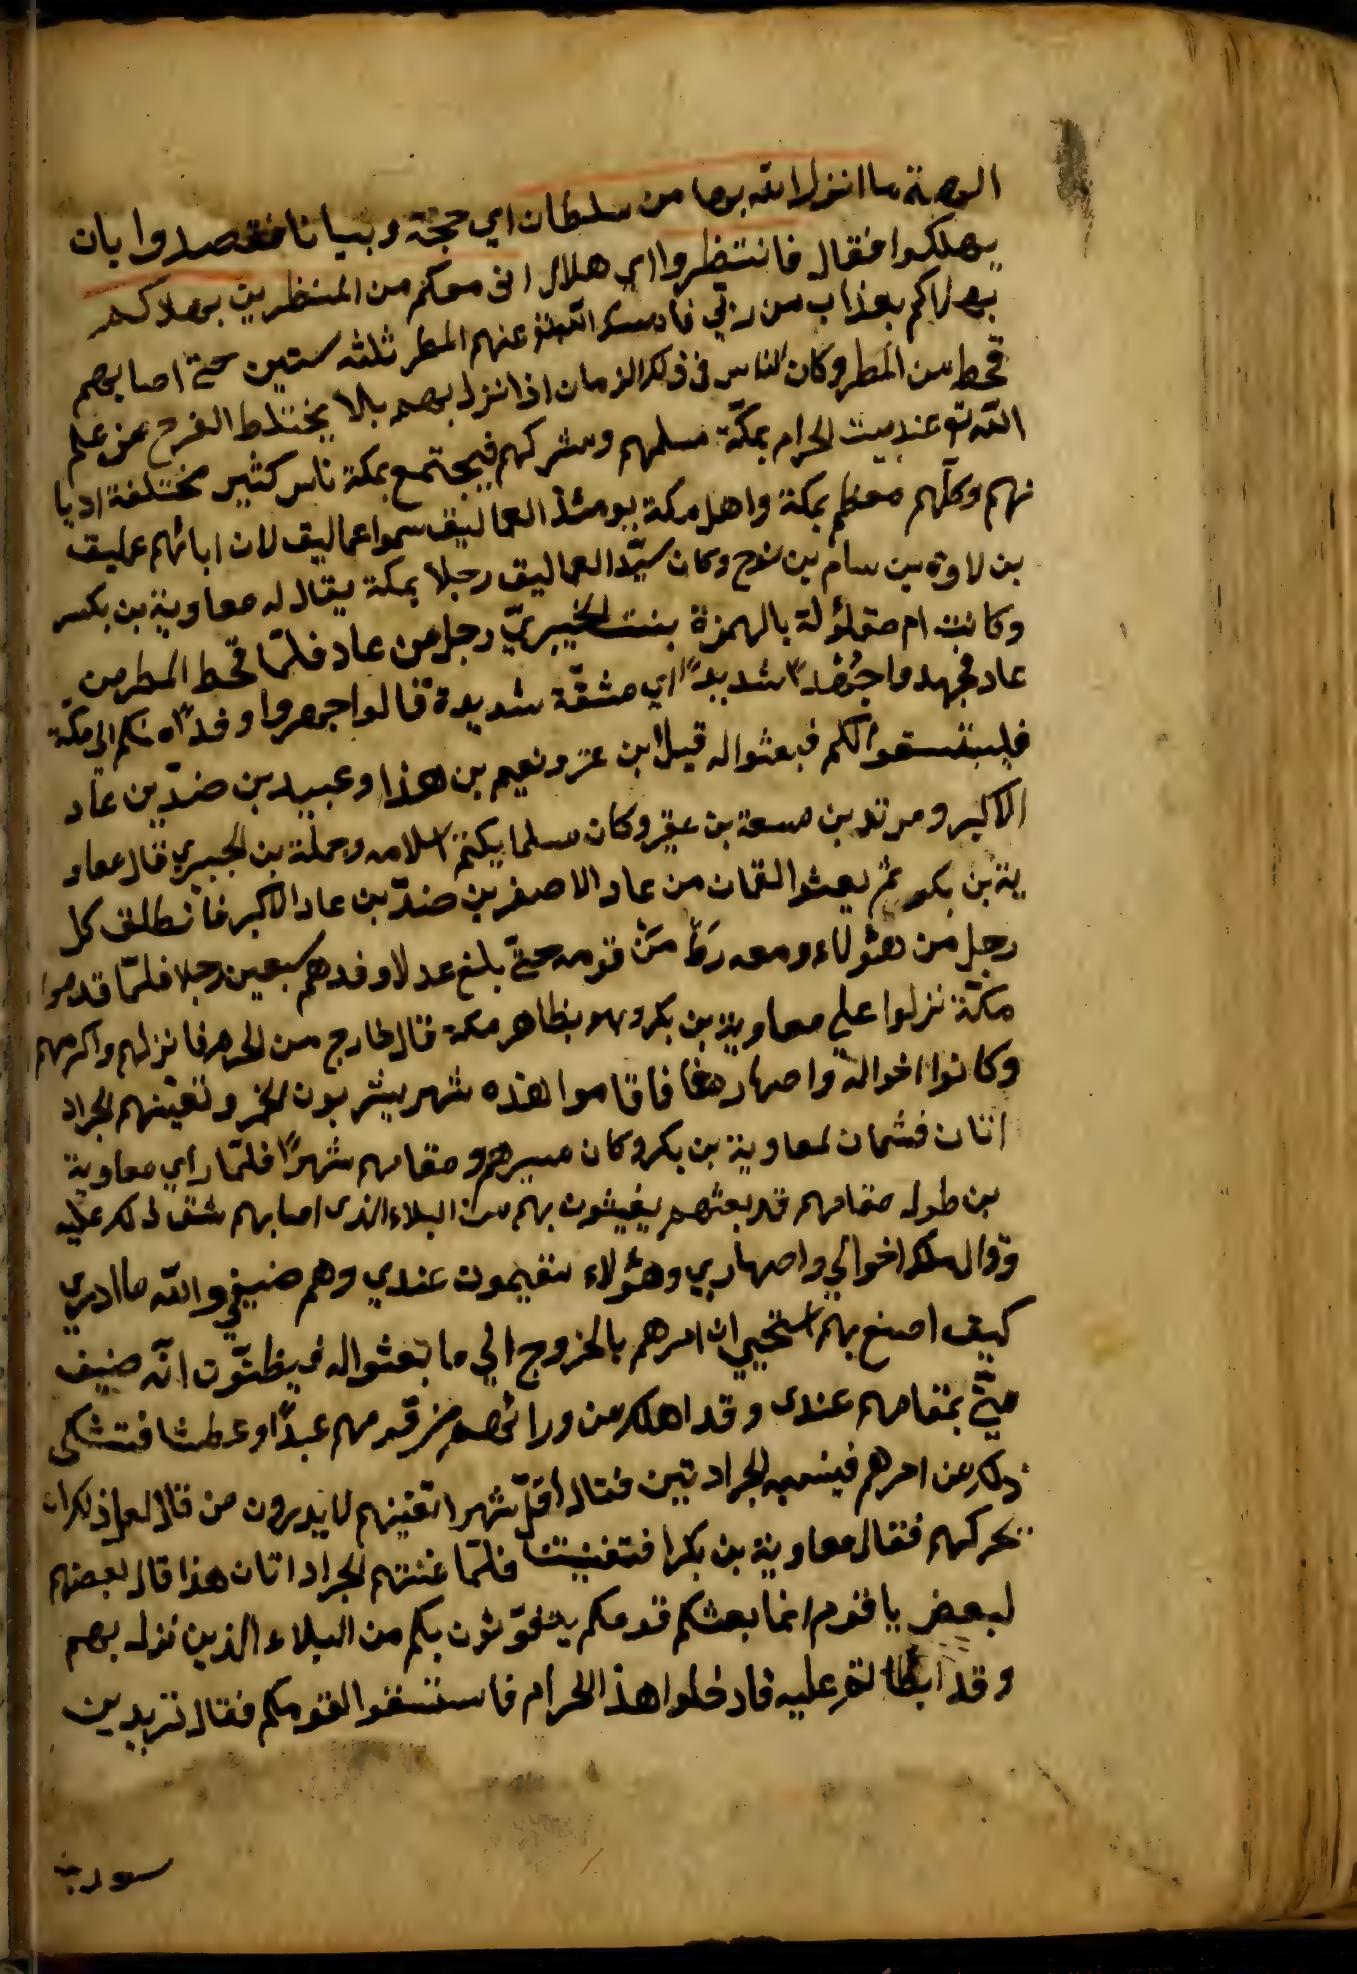 الهة ما انزل الله بها من سلطان اي حجة وبيانا فقصدوا بان
يهلكوا فقال فانتظروا اي هلال انى معكم من المنتظرين بهلاككم
بهلاكم بعذاب من ربي فامسك الله تع عنهم المطر ثلثه سنين حتى اصابهم
قحط من المطر وكان الناس فى ذلك الزمان اذا نزل بهم بالا يختلط الفرح عن علم
الله تع عند بيت الحرام بمكّة مسلمهم ومشركهم فيجتمع بمكة ناس كثير مختلفة اديا
نهم وكلّهم معظم بمكة واهل مكة يومئذ العماليق سموا عماليق لان ابائهم عمليق
بن لاوذ بن سام بن نوح وكان سيّد العماليق رجلا بمكة يقال له معاوية بن بكر
وكانت ام بالهمزة بنت الخيبريّ رجل من عاد فلمّا قحط المطر من
عاد فجهدوا جُهْدًا شديدًا اي مشقّة شديدة قالوا جهروا وفدًا منكم الى مكّة
فليستسقوا لكم فبعثوا له قيل ابن عنز ونعيم بن هذا وعبيد بن ضدّ بن عاد
الاكبر ومرثد بن سعة بن عفير وكان مسلما يكتم اسلامه وحملة بن الجبيري قال معاو
ية بن بكر ثم بعثوا لقمان من عاد الاصغر بن ضدّ بن عاد الاكبر فانطلق كل
رجل من هئولاء ومعه رهط من قومه حتّى بلغ عدلا وفدهم سبعين رجلا فلمّا قدموا
مكّة نزلوا على معاوية بن بكر وهو بظاهر مكة قال خارج من الحرم فانزلهم واكرمهم
وكانوا اخواله واصهاره فاقاموا هذه شهر يشربون الخمر وتغنيهم الجراد
اتان قشمان لمعاوية بن بكر وكان مسيرهم ومقامهم شهرًا فلمّا راي معاوية
بن طول مقامهم قد بعثهم يغيثون بهم من البلاء الذى اصابهم شق ذلك عليه
وقال هلك اخوالي واصهاري وهئولاء مقيمون عندي وهم ضيفي والله ما ادري
كيف اصنع بهم استحيي ان امرهم بالخروج الي ما بعثوا له فيظنّون انّه ضيف
منّي بمقامهم عندى وقد اهلك من ورائهم من قومهم عبدًا وعطشا فتشكى
ذلك من امرهم الجرادتين فقال اقل شهرا تغنيهم لا يدرون من قال لعل ذلك ان
يحركهم فقال معاوية بن بكرا فتغنيتنا فلمّا غنتهم الجراداتان هذا قال بعضهم
لبعض يا قوم انما بعثكم قومكم يتغوّثون بكم من البلاء الذين نزل بهم
وقد ابطاتم عليه فادخلوا هذا الحرام فاستسقوا لقومكم فقال بن